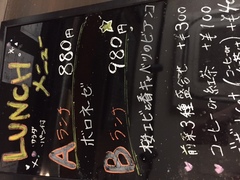 LUNCH
メニュー
サラダ
パン付
Aランチ 880円
ボロネゼ
Bランチ 980円
桜エビと春キャベツのビアンコ
前菜3種盛合せ +¥300
コーヒー or 紅茶 +¥100